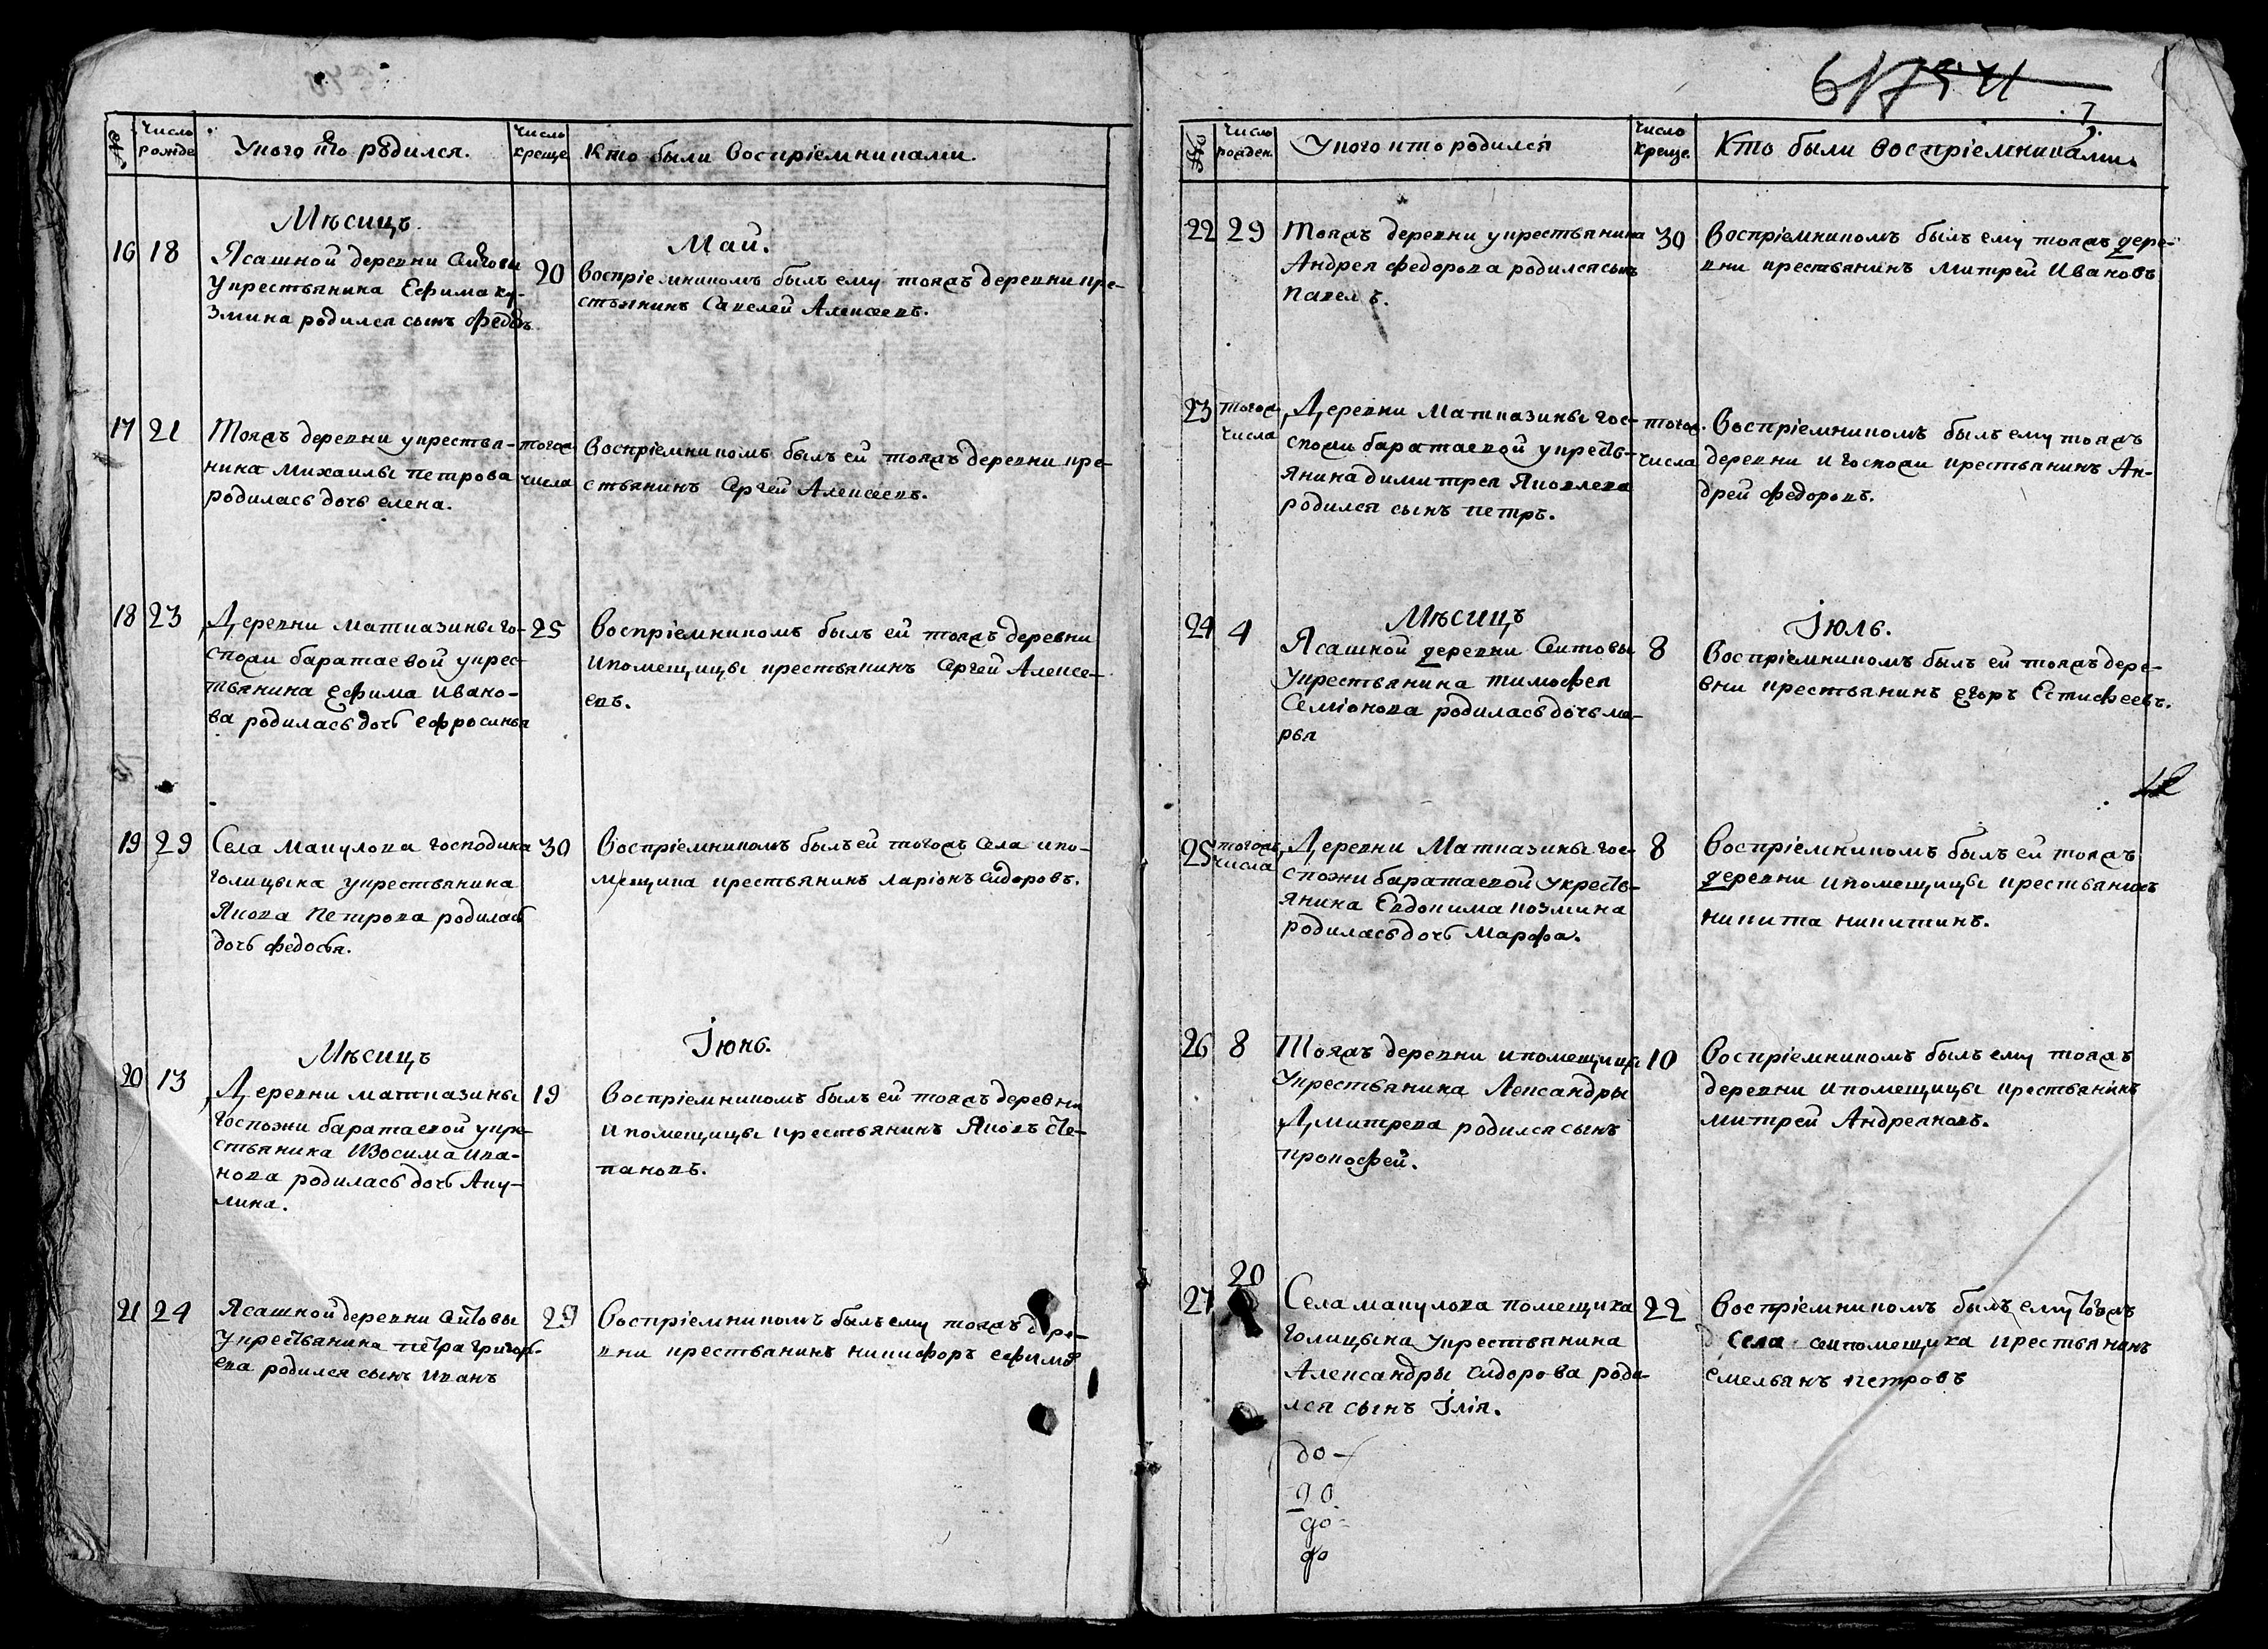 №
Число рожде
У кого кто родился.
Число креще
Кто были воспріемниками.
Мѣсицъ.
Маи.
16
18
Ясашной деревни Сиговы
У крестьянина Ефима ку-
змина родился сынъ Федоръ
20
Воспріемникомъ былъ ему тояжъ деревни кре-
стьянинъ Савелей Алексеевъ.
17
21
Тояжъ деревни у крестья-
нина михаилы петрова
родилась дочь елена.
тогож
числа
Воспріемникомъ былъ ей тояжъ деревни кре-
стьянинъ Сергей Алексеевъ.
18
23
Деревни матказины го-
спожи баратаевой у крес-
тьянина ефима ивано-
ва родилась дочь ефросинья
25
Воспріемникомъ былъ ей тояжъ деревни
и помещицы крестьянинъ Сергей Алексе-
евъ.
19
29
Села манулова господина
голицына у крестьянина
Якова петрова родилась
дочь федосья.
30
Воспріемникомъ былъ ей тогожъ села и по-
мещика крестьянинъ ларіонъ сидоровъ.
Мѣсицъ
Іюнь.
20
13
Деревни матказины
госпожи баратаевой у кре-
стьянина Изосима ива-
нова родилась дочь Аку-
лина.
19
Воспріемникомъ былъ ей тояжъ деревни
и помещицы крестьянинъ Яковъ сте-
пановъ.
21
24
Ясашной деревни ситовы
у крестьянина петра григорь-
ева родился сынъ иванъ
29
Воспріемникомъ былъ ему тояжъ дере-
вни крестьянинъ никифоръ ефимов
61
7
№
Число рожден
У кого кто родился
Число креще.
Кто были воспріемниками.
22
29
Тояжъ деревни у крестьянина
Андрея федорова родился сынъ
павелъ.
30
Воспріемникомъ былъ ему тояжъ дере-
вни крестьянинъ митрей Ивановъ
23
тогож
числа
Деревни Матказины гос-
спожи баратаевой у кресть-
янина димитрея Яковлева
родился сынъ петръ.
тогож.
числа
Воспріемникомъ былъ ему тояжъ
деревни и госпожи крестьянинъ Ан-
дрей федоровъ.
Мѣсицъ
Іюль.
24
4
Ясашной деревни Ситовы
у крестьянина тимофея
Семіонова родилась дочь ма-
рья
8
Воспріемникомъ былъ ей тояжъ дере-
вни крестьянинъ егоръ Естифеевъ.
25
тогожъ
числа
Деревни Матказины гос-
спожи баратаевой у кресть-
янина Евдокима козмина
родилась дочь Марфа.
8
Воспріемникомъ былъ ей тояжъ
деревни и помещицы крестьянинъ
никита никитинъ.
26
8
Тояжъ деревни и помещицы
У крестьянина Александры
Дмитрева родился сынъ
прокофей.
10
Воспріемникомъ былъ ему тояжъ
деревни и помещицы крестьянинъ
митрей Андреяновъ.
27
20
Села манулова помещика
голицына у крестьянина
Александры сидорова роди-
лся сынъ Ілія.
22
Воспріемникомъ былъ ему тогожъ
села помещика крестьянинъ
емельянъ петровъ
до
до
до
до